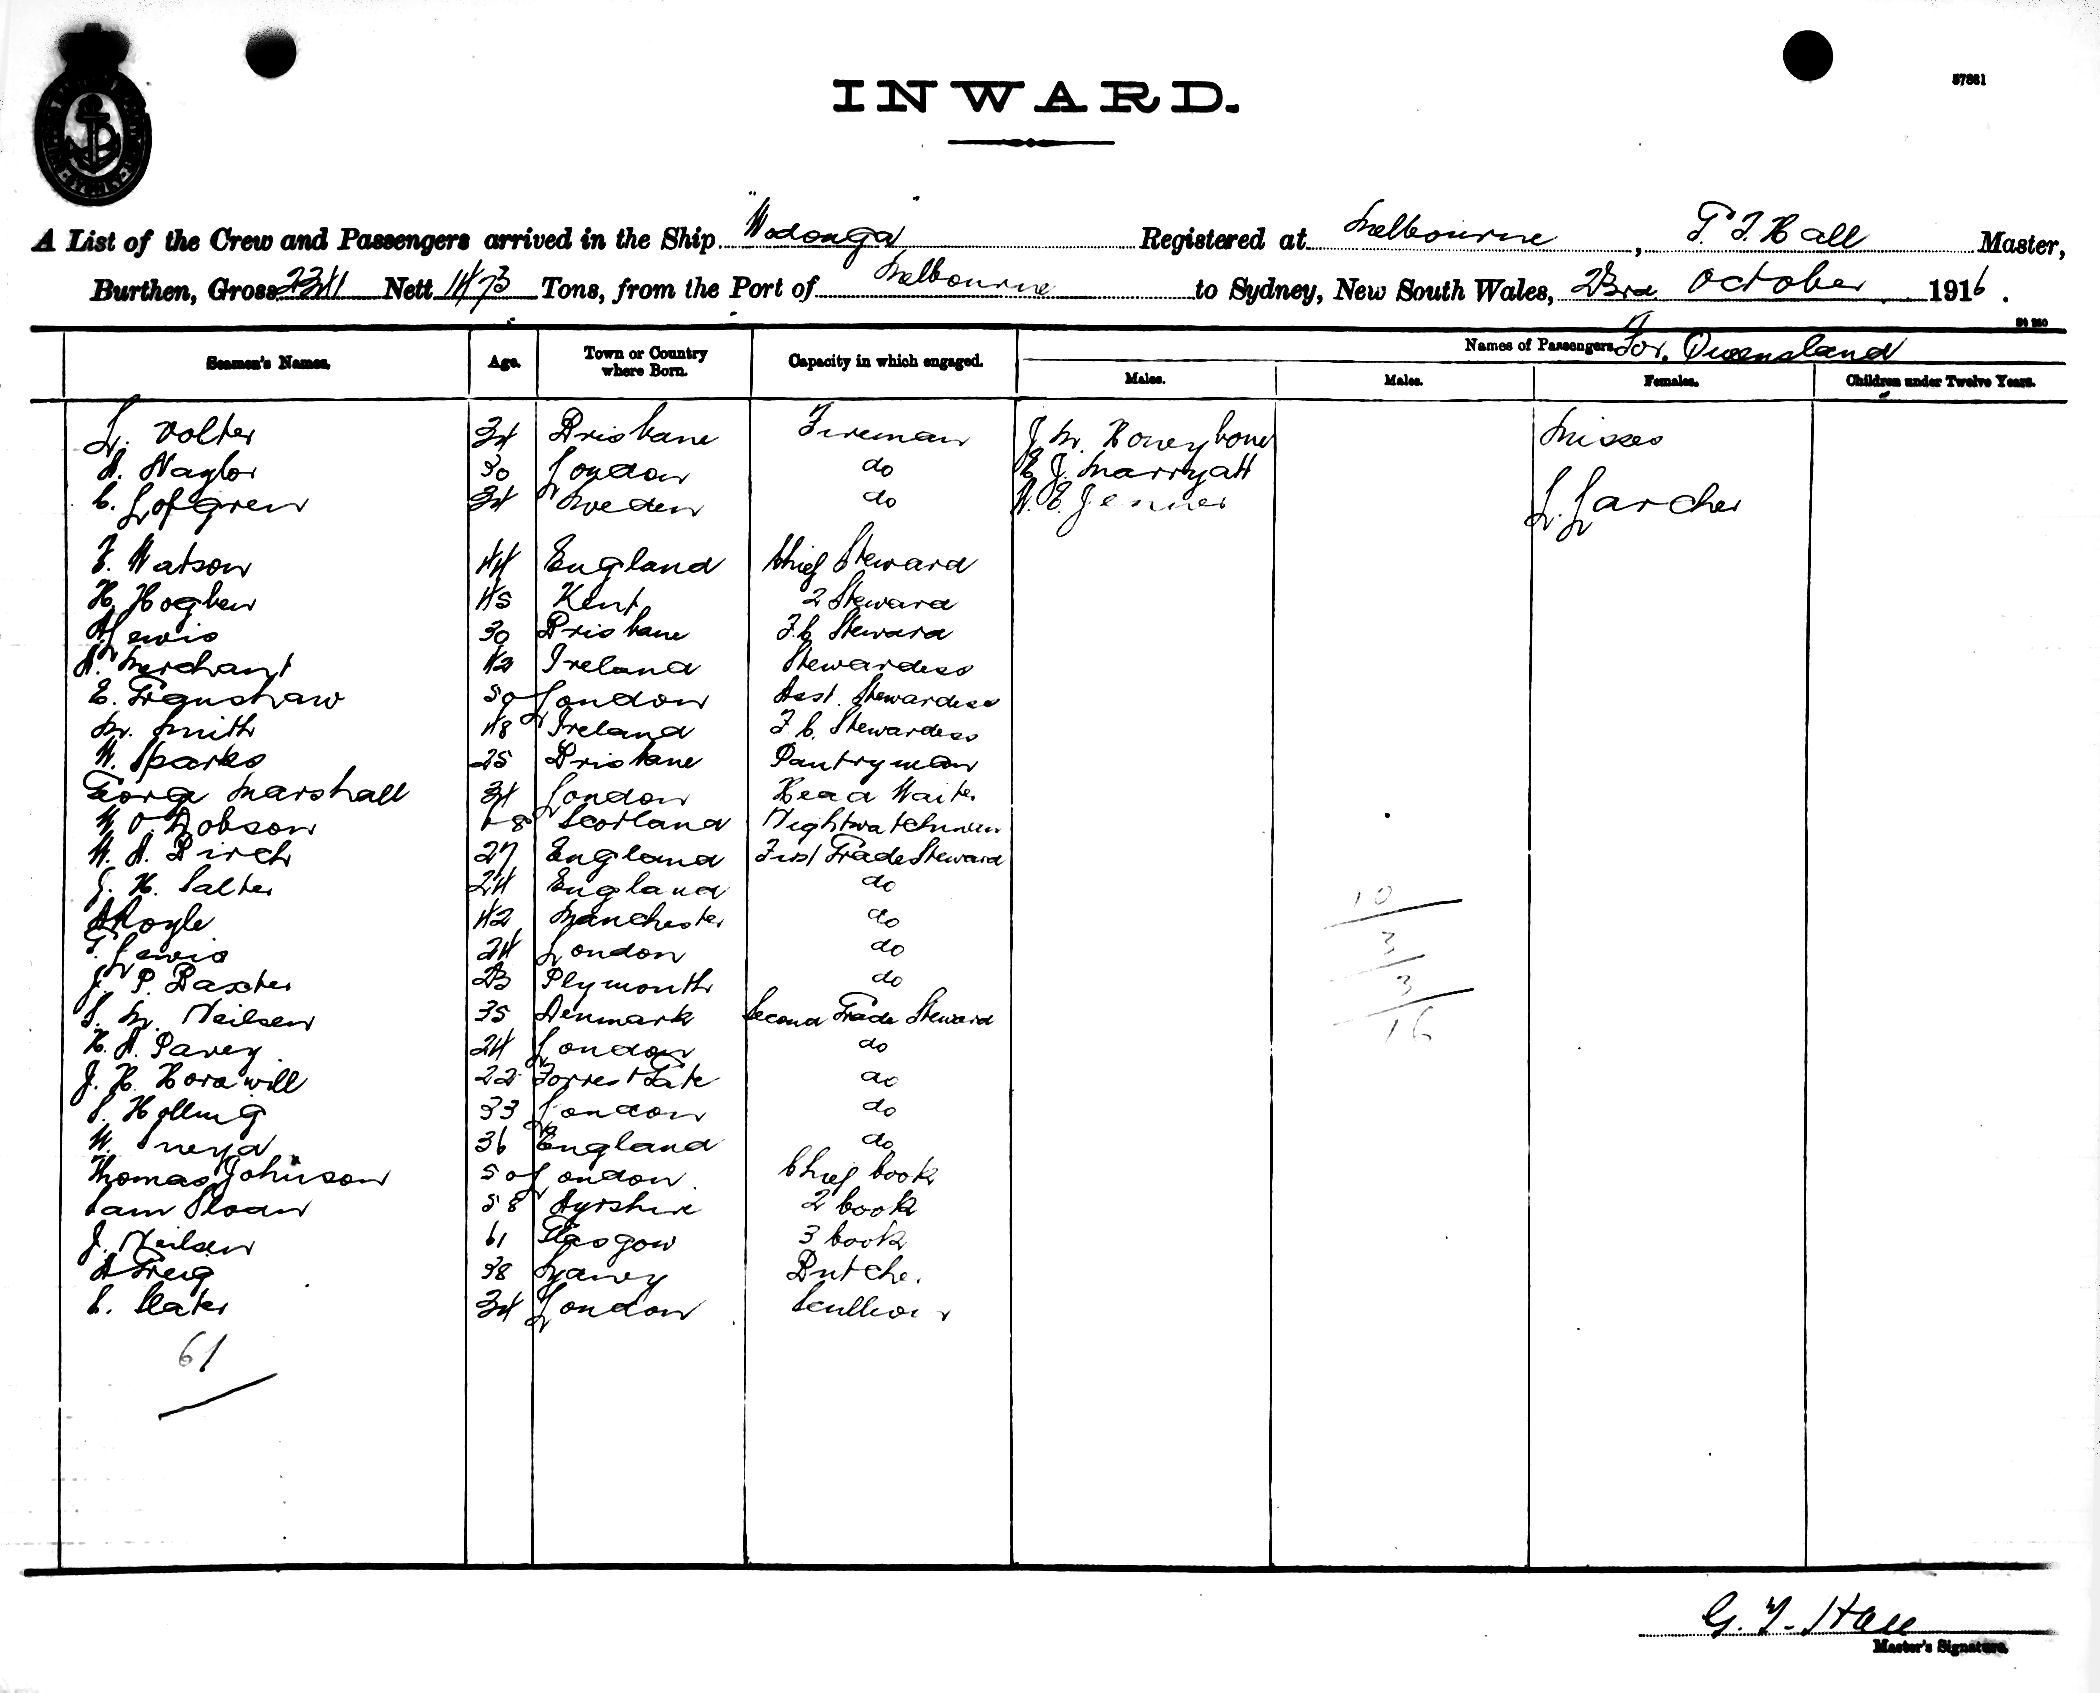 INWARD.
57881
A List of the Crew and Passengers arrived in the Ship "Wodonga" Registered at Melbourne, G. T. Hall Master,
Burthen, Gross 2341 Nett 1473 Tons, from the Port of Melbourne to Sydney, New South Wales, 23rd October 1916.
Names of Passengers For Queensland
Seamen's Names. Age. Town or Country where Born. Capacity in which engaged. Males. Males. Females. Children under Twelve Years.
L. Volter 34 Brisbane Fireman J. M. Honeybone Misses
A. Naylor 30 London do E J. Marryatt
C. Lofgren 34 Sweden do A. E. Jenner L. Larcher
F. Watson 44 England Chief Steward
H. Hogben 45 Kent 2 Steward
A Lewis 30 Brisbane F.C. Steward
A. Merchant 42 Ireland Stewardess
E. Granshaw 50 London Asst. Stewardess
M. Smith 48 Ireland F.C. Stewardess
W. Sparks 25 Brisbane Pantryman
George Marshall 34 London Head Waiter
W O. Dobson Scotland Nightwatchman
W. A. Birch 27 England First Grade Steward
J. H. Salter 24 England do
A Royle 42 Manchester do
G. Lewis 24 London do
J. P. Baxter 23 Plymouth do
S. M. Neilsen 35 Denmark Second Grade Steward
H. A. Pavey 24 London do
J. H. Horswill 22 Forrest Gate do
S. Holling 33 London do
W. 36 England do
Thomas Johnson 50 London Chief Cook
Sam Sloan 58 Ayrshire 2 Cook
J. Neilsen 61 Glasgow 3 Cook
A Greig 38 Sydney Butcher
C. Slater 34 London Scullion
10
3
3
16
61
G. T. Hall
Master's Signature.